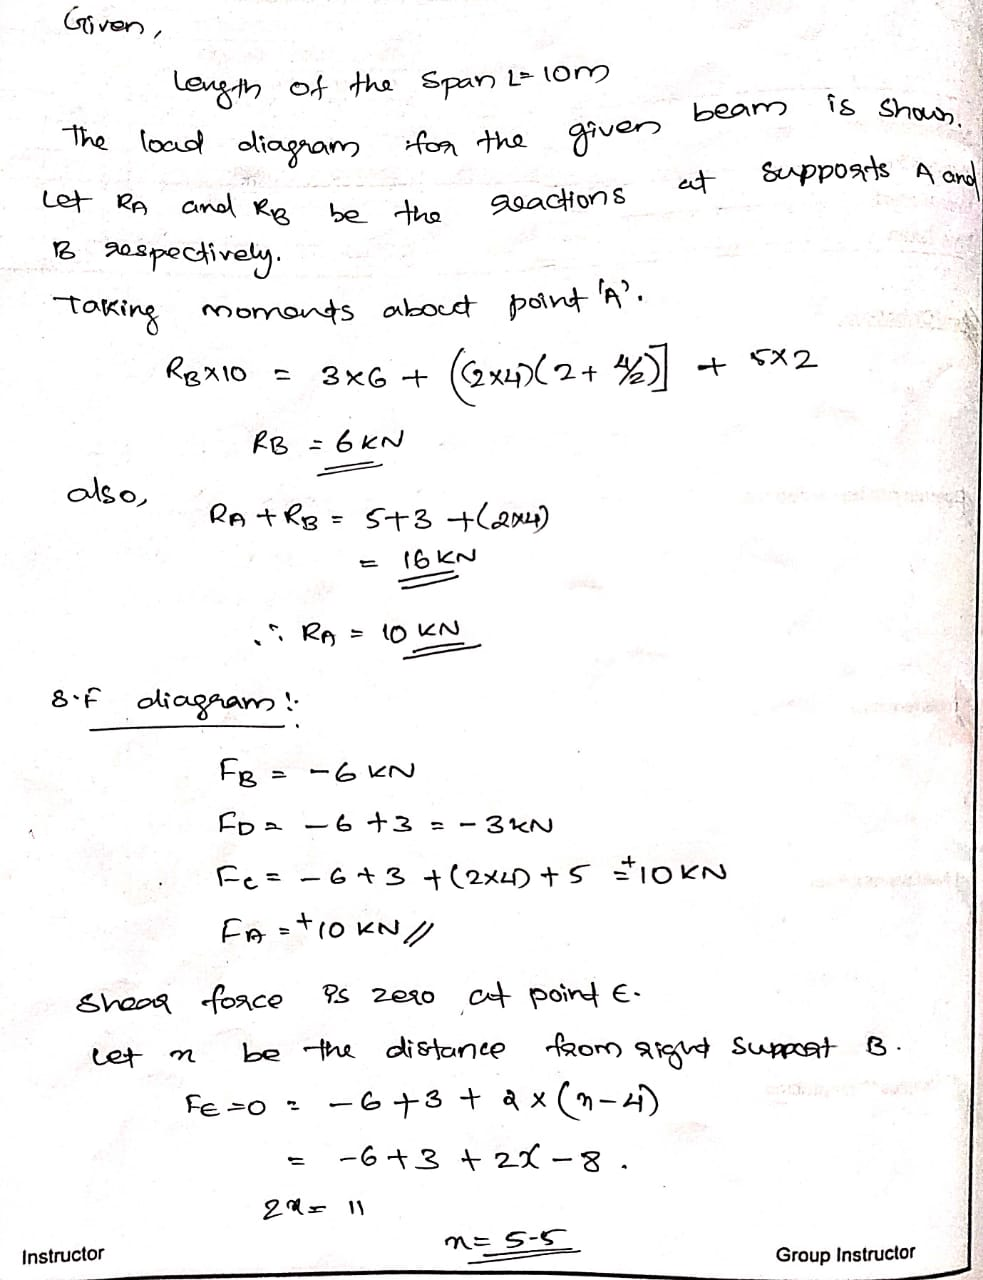 Given,
Length of the Span L= 10m
The load diagram for the given beam is shown.
Let RA and RB be the reactions at supports A and
B respectively.
Taking moments about point 'A'.
RB×10 = 3×6 + ((2×4)(2+ 4/2)] + 5×2
RB = 6 KN
also,
RA + RB = 5+3 +(2×4)
= 16 KN
∴ RA = 10 KN
S.F diagram:-
FB = -6 KN
FD = -6 +3 = -3KN
Fc = -6+3 +(2×4) + 5 = +10 KN
FA = +10 KN //
Shear force is zero at point E.
Let x be the distance from right support B.
FE =0 = -6+3 + 2×(x-4)
= -6+3 + 2x -8 .
2x = 11
x = 5.5
Instructor
Group Instructor